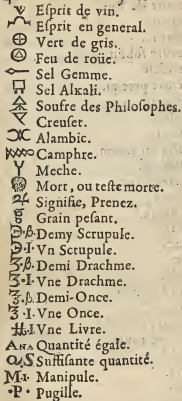 Eſprit de vin.
Eſprit en general.
Vert de gris.
Feu de roüe.
Sel Gemme.
Sel Alkali.
Soufre des Philoſophes.
Creuſet.
Alambic.
Camphre.
Meche.
Mort, ou teſte morte.
Signifie, Prenez.
Grain peſant.
Demy Scrupule.
Vn Scrupule.
Demi Drachme.
Vne Drachme.
Demi-Once.
Vne Once.
Vne Livre.
Ana Quantité égaſe.
Q.S Suffiſante quantité.
M. Manipule.
P. Pugille.